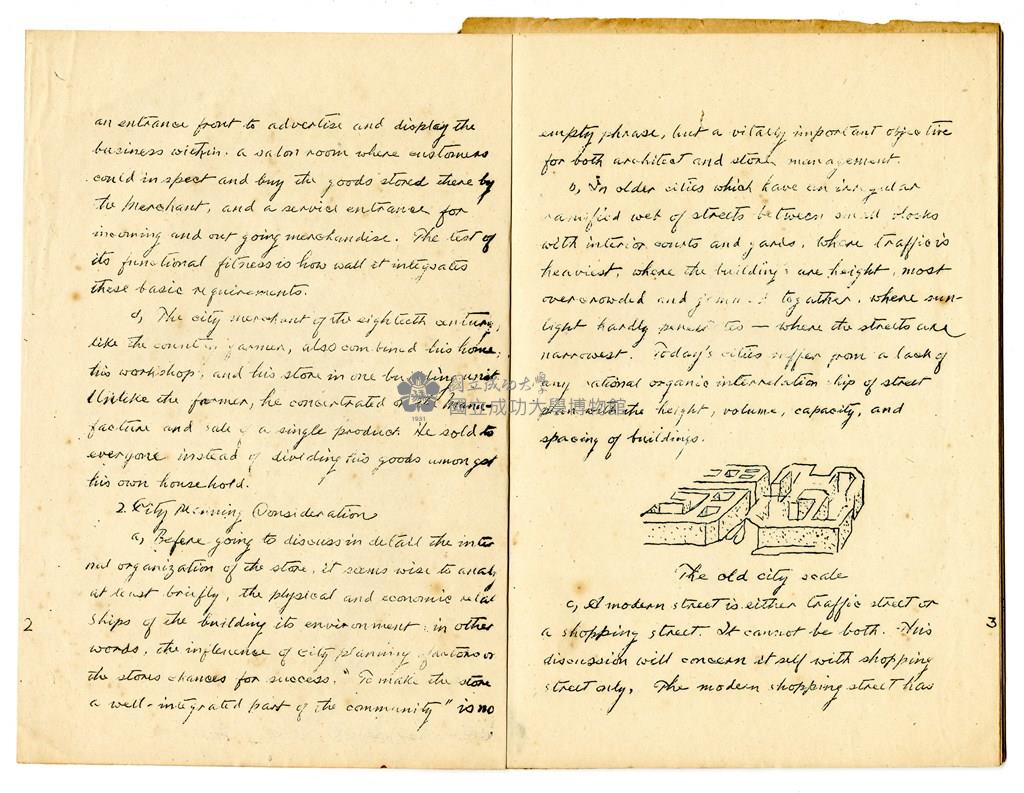 an entrance front to advertise and display the
business within. a salon room where customers
could inspect and buy the goods stored there by
the Merchant, and a service entrance for
incoming and out going merchandise. The test of
its functional fitness is how wall it integsates
these basic requirements.
d, The city merchant of the eighteeth century,
like the country farmer, also combined his home,
his workshop, and his store in one building unit
Unlike the farmer, he concertrated on the manu-
facture and sale of a single product. He sold to
everyone instead of dividing his goods amongst
his own household.
2. City Planning Consideration
a, Before going to discuss in detail the inte
nal organization of the store, it seems wise to analy
at least briefly, the physical and economic relat
ships of the building its environment: in other
words, the inflence of city planning factors or
the stores chances for success. "To make the store
a well-integrated part of the community" is no
2
empty phrase, but a vitally important objective
for both architect and store management.
b, In older cities which have an irregular
ramified web of streets between small blocks
with interior courts and yards, where traffic is
heaviest, where the buildings are height, most
overcrowded and jammed together, where sun-
light hardly penetrates — where the streets are
narrowest. Today's cities suffer from a lack of
any rational organic interrelation ship of street
plan with the height, volume, capacity, and
spacing of buildings.
The old city scale
c, A modern street is either traffic street or
a shopping street. It cannot be both. This
discussion will concern it self with shopping
street only. The modern shopping street has
3
國立成功大學
國立成功大學博物館
1931